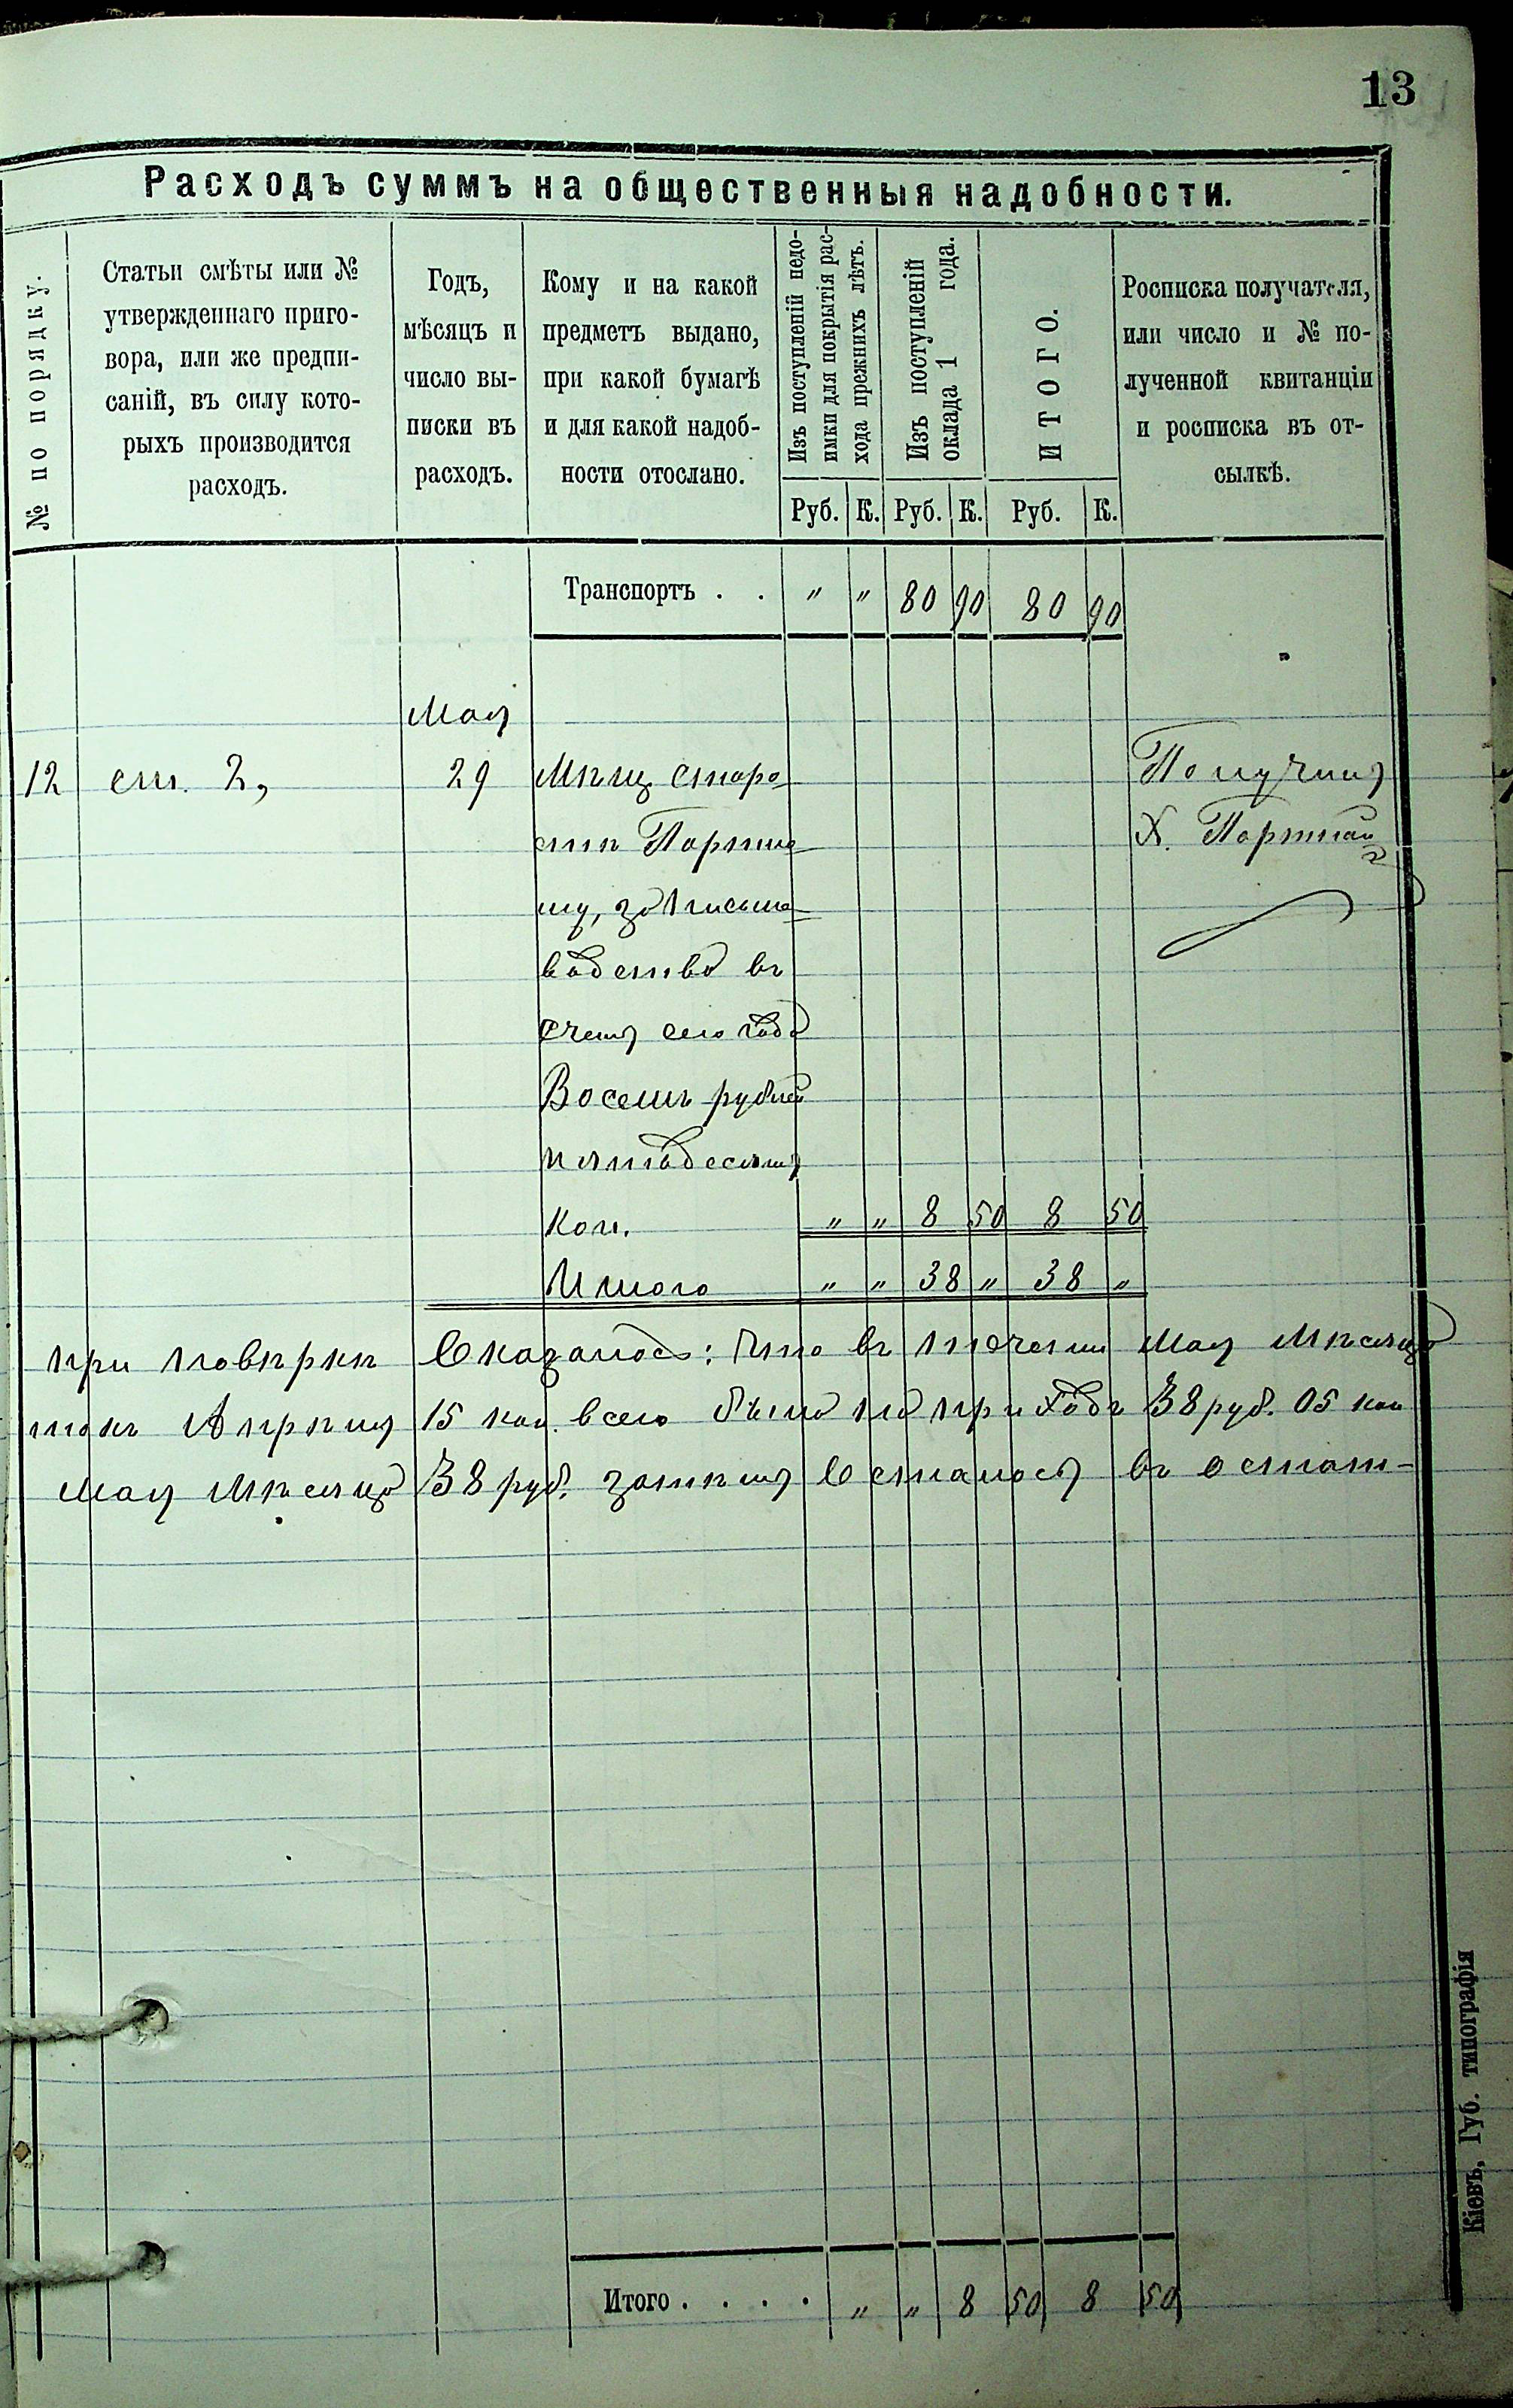 13
Расходъ суммъ на общественныя надобности.
№ по порядку.
Статьи смѣты или №
утвержденнаго приго-
вора, или же предпи-
саній, въ силу кото-
рыхъ производится
расходъ.
Годъ,
мѣсяцъ и
число вы-
писки въ
расходъ.
Кому и на какой
предметъ выдано,
при какой бумагѣ
и для какой надоб-
ности отослано.
Изъ поступленій недо-
имки для покрытія рас-
хода прежнихъ лѣтъ.
Изъ поступленій
оклада 1 года.
ИТОГО.
Росписка получателя,
или число и № по-
лученной квитанціи
и росписка въ от-
сылкѣ.
Руб. К. Руб. К. Руб. К.
Транспортъ . . " " 80 90 80 90
Мая
12 ст. 2, 29 Мѣщ. старо
стѣ Портно
му, за письмо
водство въ
счетъ сего года
Восемь рублей
пятьдесятъ
коп. " " 8 50 8 50
Итого " " 38 " 38 "
Получилъ
Х. Портной
при повѣркѣ Оказалось: что въ теченіи Мая Мѣсяца
15 коп. всего было на приходѣ 38 руб. 05 коп
Мая Мѣсяца 38 руб. затѣмъ Осталось въ остат-
Итого . . . . " " 8 50 8 50
Кіевъ, Губ. типографія